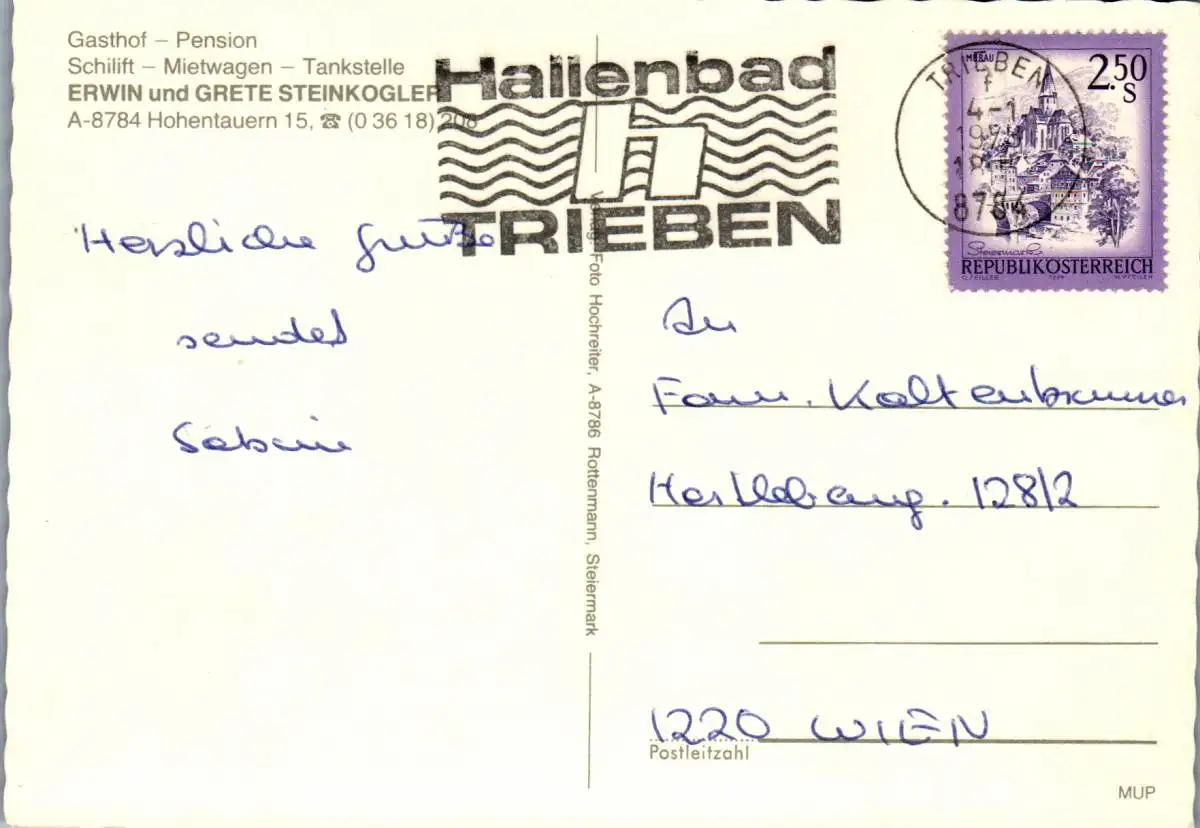 Gasthof – Pension
Schilift – Mietwagen – Tankstelle
ERWIN und GRETE STEINKOGLER
A-8784 Hohentauern 15, ☎ (0 36 18) 208
Hallenbad
h
TRIEBEN
TRIEBEN
f
4-1
18
8784
MURAU
2.50
S
Steiermark
REPUBLIK ÖSTERREICH
Herzliche Grüße
sendet
Sabine
Verlag: Foto Hochreiter, A-8786 Rottenmann, Steiermark
An
Fam. Kaltenbrunner
128/2
1220 WIEN
Postleitzahl
MUP